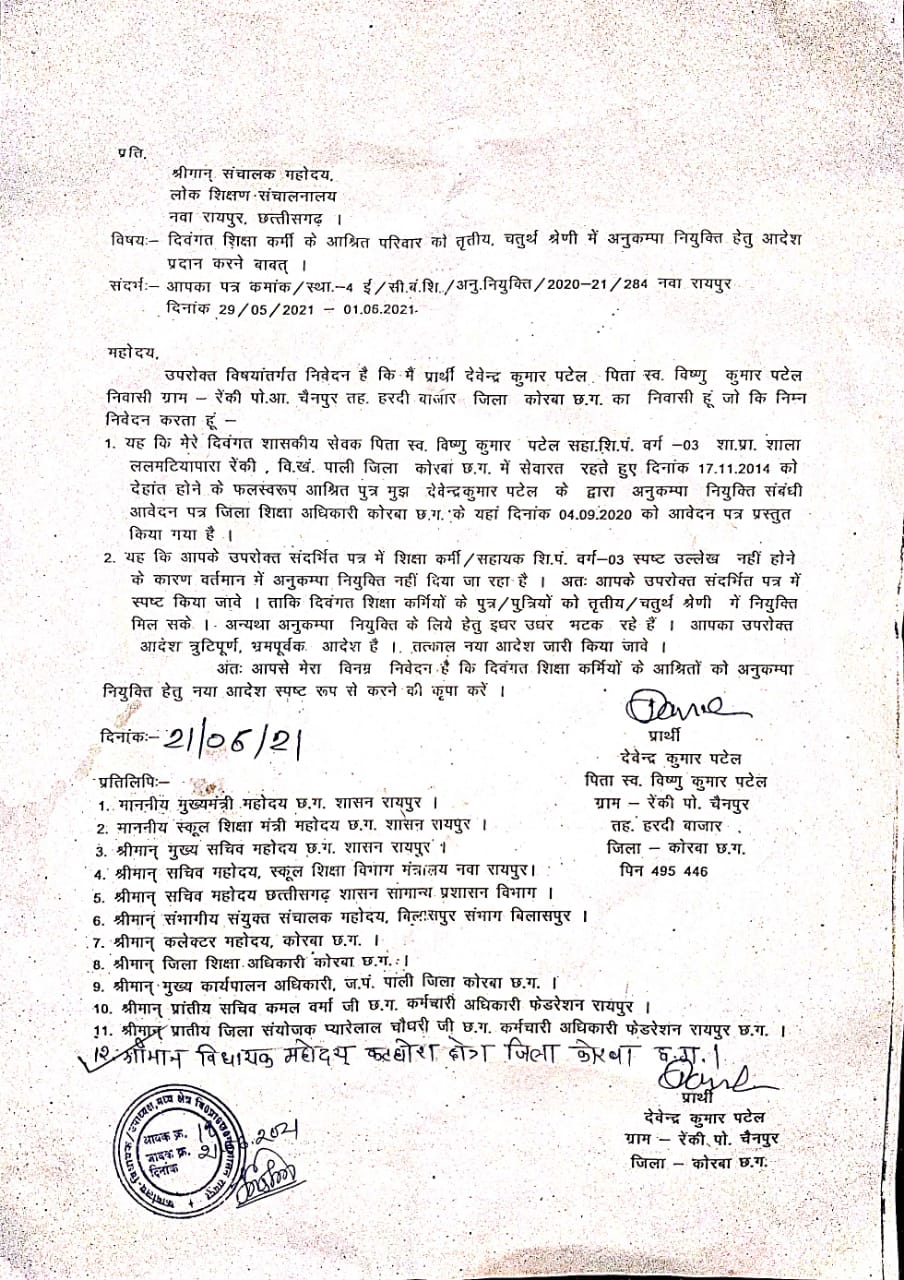 प्रति,
श्रीमान् संचालक महोदय,
लोक शिक्षण संचालनालय
नवा रायपुर, छत्तीसगढ़ ।
विषयः– दिवंगत शिक्षा कर्मी के आश्रित परिवार को तृतीय, चतुर्थ श्रेणी में अनुकम्पा नियुक्ति हेतु आदेश
प्रदान करने बाबत् ।
संदर्भः– आपका पत्र कमांक/स्था.–4 ई/सी.बं.शि./अनु.नियुक्ति/2020–21/284 नवा रायपुर
दिनांक 29/05/2021 – 01.06.2021.
महोदय,
उपरोक्त विषयांतर्गत निवेदन है कि मैं प्रार्थी देवेन्द्र कुमार पटेल पिता स्व. विष्णु कुमार पटेल
निवासी ग्राम – रेंकी पो.आ. चैनपुर तह. हरदी बाजार जिला कोरबा छ.ग. का निवासी हूं जो कि निम्न
निवेदन करता हूं –
1. यह कि मेरे दिवंगत शासकीय सेवक पिता स्व. विष्णु कुमार पटेल सहा.शि.पं. वर्ग –03 शा.प्रा. शाला
ललमटियापारा रेंकी , वि.खं. पाली जिला कोरबा छ.ग. में सेवारत रहते हुए दिनांक 17.11.2014 को
देहांत होने के फलस्वरूप आश्रित पुत्र मुझ देवेन्द्रकुमार पटेल के द्वारा अनुकम्पा नियुक्ति संबंधी
आवेदन पत्र जिला शिक्षा अधिकारी कोरबा छ.ग. के यहां दिनांक 04.09.2020 को आवेदन पत्र प्रस्तुत
किया गया है ।
2. यह कि आपके उपरोक्त संदर्भित पत्र में शिक्षा कर्मी/सहायक शि.पं. वर्ग–03 स्पष्ट उल्लेख नहीं होने
के कारण वर्तमान में अनुकम्पा नियुक्ति नहीं दिया जा रहा है । अतः आपके उपरोक्त संदर्भित पत्र में
स्पष्ट किया जावे । ताकि दिवंगत शिक्षा कर्मियों के पुत्र/पुत्रियों को तृतीय/चतुर्थ श्रेणी में नियुक्ति
मिल सके । अन्यथा अनुकम्पा नियुक्ति के लिये हेतु इघर उधर भटक रहे हैं । आपका उपरोक्त
आदेश त्रुटिपूर्ण, भ्रमपूर्वक आदेश है । तत्काल नया आदेश जारी किया जावे ।
अंतः आपसे मेरा विनम्र निवेदन है कि दिवंगत शिक्षा कर्मियों के आश्रितों को अनुकम्पा
नियुक्ति हेतु नया आदेश स्पष्ट रूप से करने की कृपा करें ।
दिनांकः– 21/06/21
प्रार्थी
देवेन्द्र कुमार पटेल
पिता स्व. विष्णु कुमार पटेल
ग्राम – रेंकी पो. चैनपुर
तह. हरदी बाजार
जिला – कोरबा छ.ग.
पिन 495 446
प्रतिलिपिः–
1. माननीय मुख्यमंत्री महोदय छ.ग. शासन रायपुर ।
2. माननीय स्कूल शिक्षा मंत्री महोदय छ.ग. शासन रायपुर ।
3. श्रीमान् मुख्य सचिव महोदय छ.ग. शासन रायपुर ।
4. श्रीमान् सचिव महोदय, स्कूल शिक्षा विभाग मंत्रालय नवा रायपुर।
5. श्रीमान् सचिव महोदय छत्तीसगढ़ शासन सामान्य प्रशासन विभाग ।
6. श्रीमान् संभागीय संयुक्त संचालक महोदय, बिलासपुर संभाग बिलासपुर ।
7. श्रीमान् कलेक्टर महोदय, कोरबा छ.ग. ।
8. श्रीमान् जिला शिक्षा अधिकारी कोरबा छ.ग. ।
9. श्रीमान् मुख्य कार्यपालन अधिकारी, ज.पं. पाली जिला कोरबा छ.ग. ।
10. श्रीमान् प्रांतीय सचिव कमल वर्मा जी छ.ग. कर्मचारी अधिकारी फेडरेशन रायपुर ।
11. श्रीमान् प्रातीय जिला संयोजक प्यारेलाल चौधरी जी छ.ग. कर्मचारी अधिकारी फेडरेशन रायपुर छ.ग. ।
12. श्रीमान विधायक महोदय कटघोरा क्षेत्र जिला कोरबा छ.ग.।
प्रार्थी
देवेन्द्र कुमार पटेल
ग्राम – रेंकी पो. चैनपुर
जिला – कोरबा छ.ग.
आवक क्र.
जावक क्र.
दिनांक